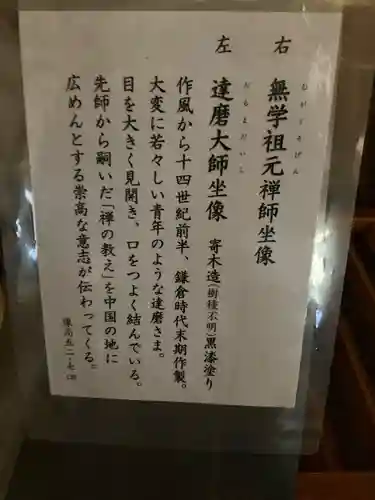 右　無学祖元禅師坐像
むがくそげん
左　達磨大師坐像　寄木造(樹種不明)黒漆塗り
だるまだいし
作風から十四世紀前半、鎌倉時代末期作製。
大変に若々しい青年のような達磨さま。
目を大きく見開き、口をつよく結んでいる。
先師から嗣いだ「禅の教え」を中国の地に
広めんとする崇高な意志が伝わってくる。